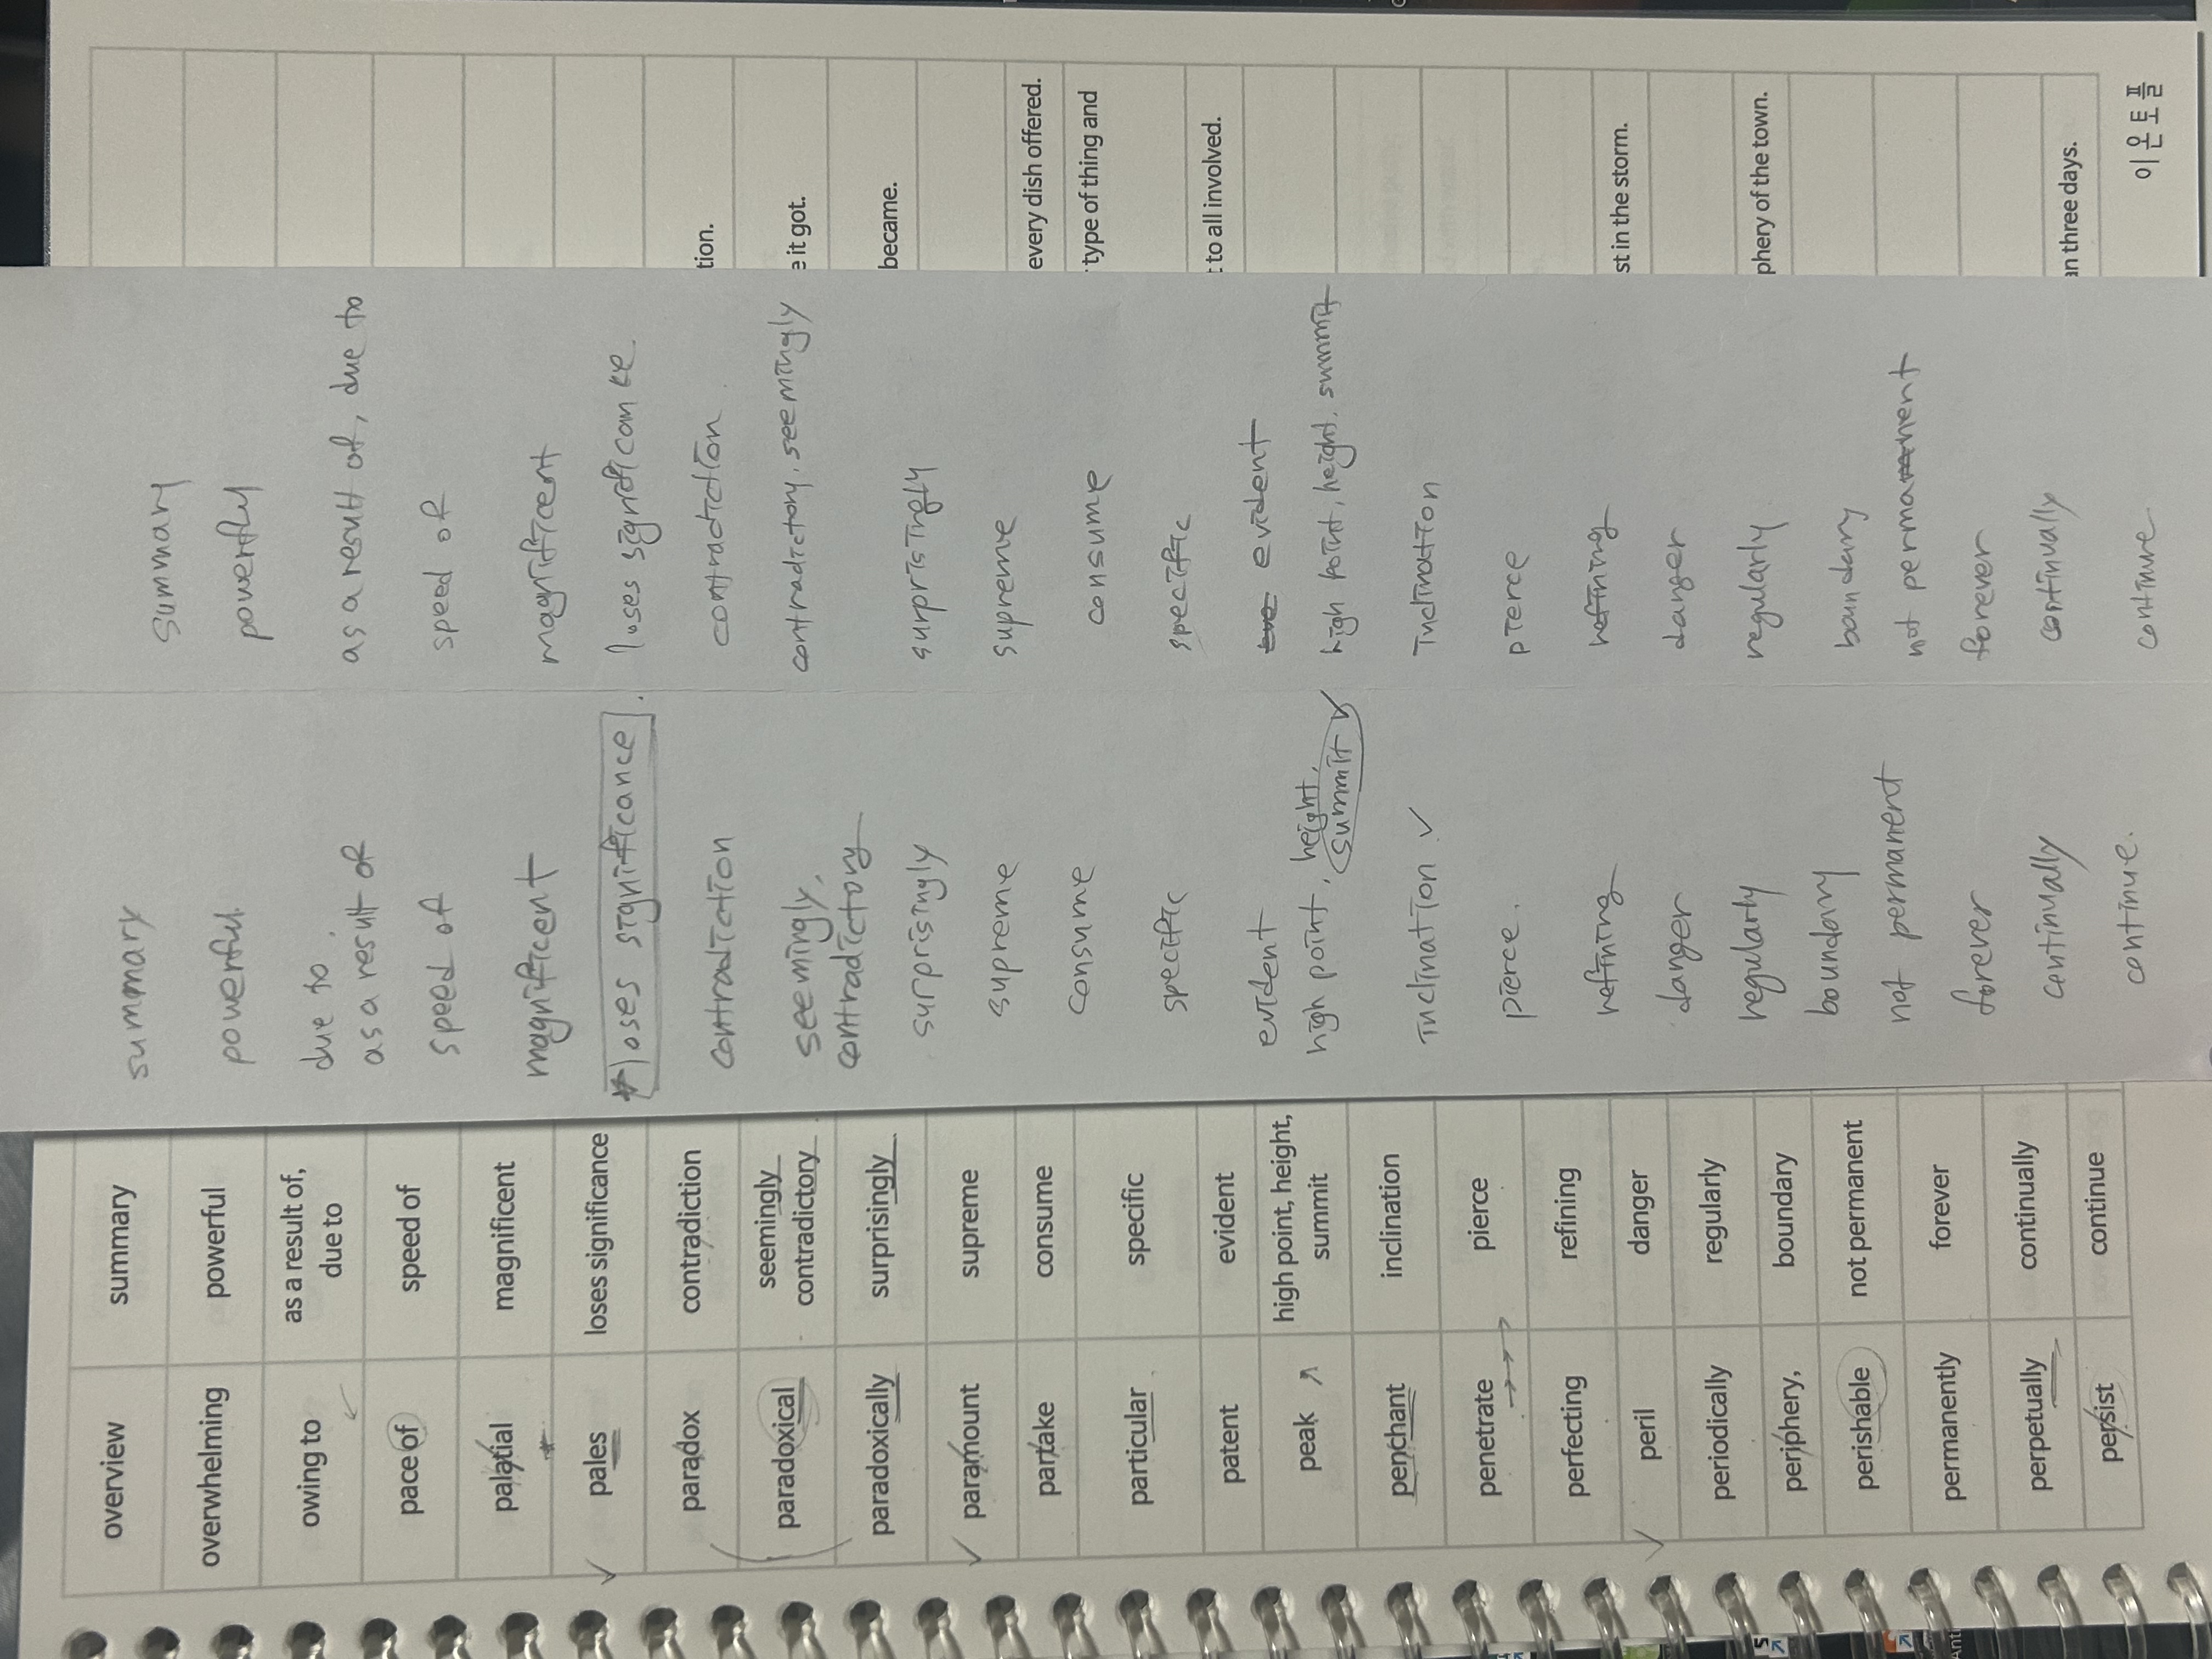 overview summary summary summary
overwhelming powerful powerful powerful
owing to as a result of, due to due to as a result of as a result of, due to
pace of speed of speed of speed of
palatial magnificent magnificent magnificent
pales loses significance loses significance loses significan ce
paradox contradiction contradiction contradiction tion.
paradoxical seemingly contradictory seemingly, contradictory contradictory, seemingly e it got.
paradoxically surprisingly surprisingly surprisingly became.
paramount supreme supreme supreme
partake consume consume consume every dish offered.
particular specific specific specific type of thing and
patent evident evident evident t to all involved.
peak high point, height, summit high point, height, summit high point, height, summit
penchant inclination inclination inclination
penetrate pierce pierce. pierce
perfecting refining refining refining
peril danger danger danger st in the storm.
periodically regularly regularly regularly
periphery, boundary boundary boundary phery of the town.
perishable not permanent not permanent not permanent
permanently forever forever forever
perpetually continually continually continually
persist continue continue. continue an three days.
이온토플